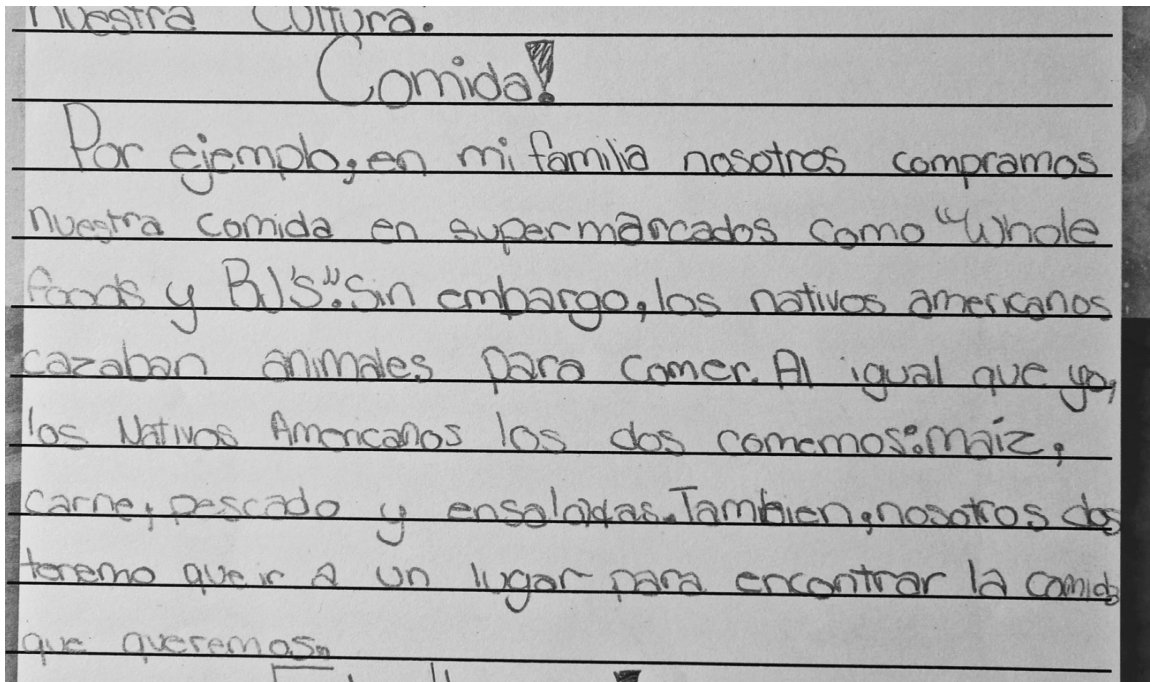 nuestra cultura.
Comida!
Por ejemplo, en mi familia nosotros compramos
nuestra comida en supermarcados como "Whole
foods y BJ's". Sin embargo, los nativos americanos
cazaban animales para comer. Al igual que yo,
los Nativos Americanos los dos comemos: maíz,
carne, pescado y ensaladas. Tambien, nosotros dos
teremo que ir a un lugar para encontrar la comida
que queremos.